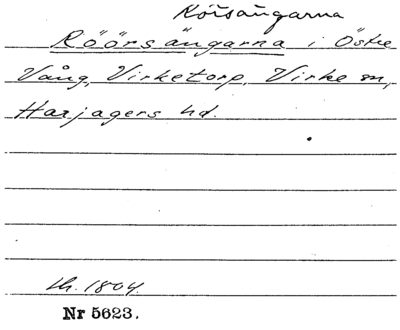 Rörsängarna
Röörsängarna i Östre
Vång, Virketorp, Virke sn,
Harjagers hd.
Lh. 1804.
Nr 5623.